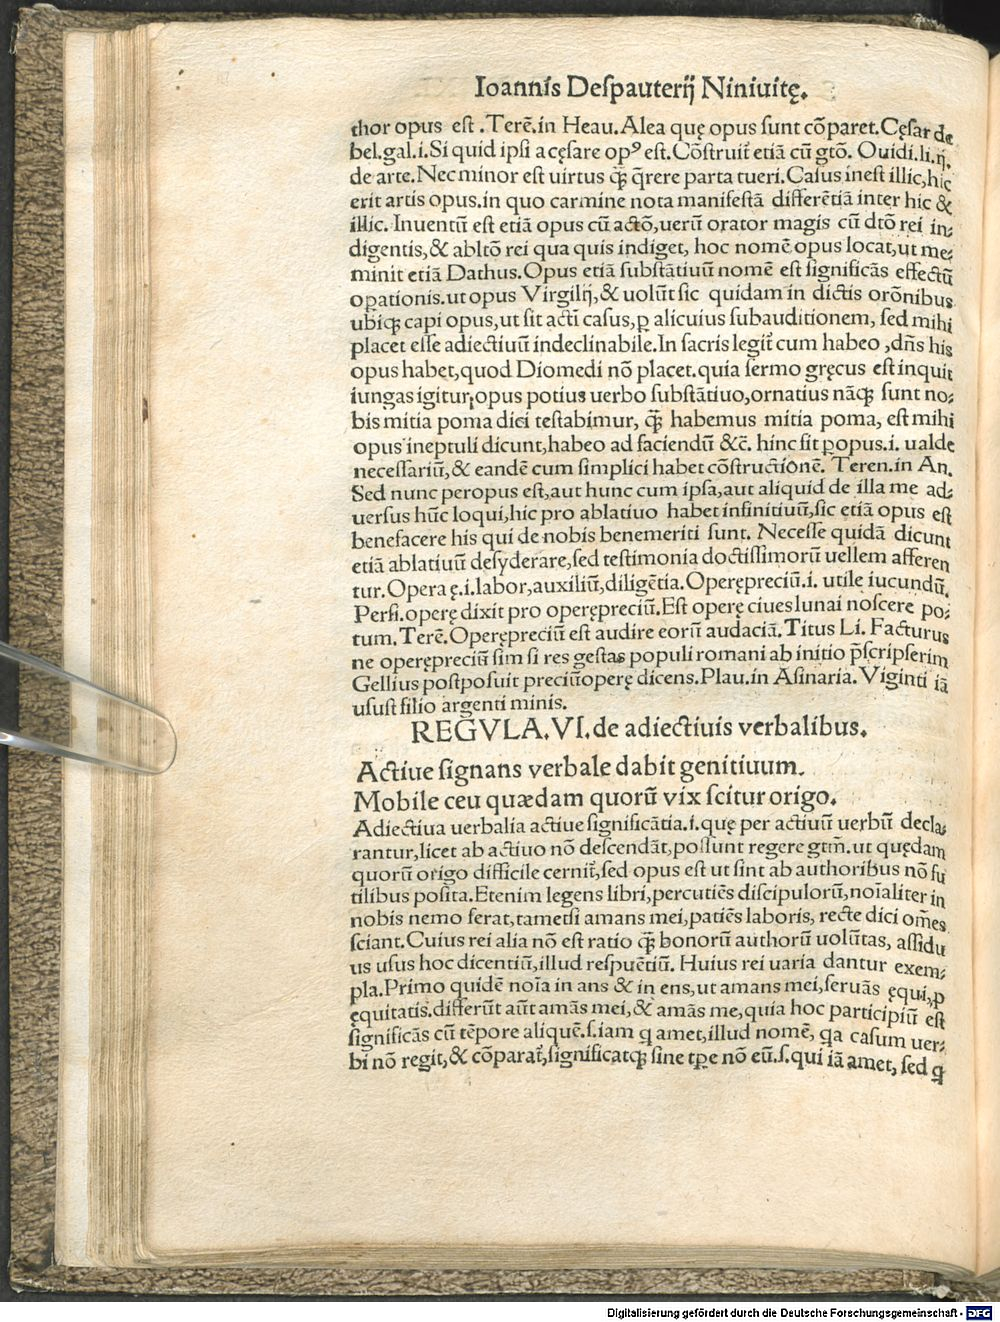 Ioannis Deſpauterij Niniuitę.
thor opus eſt .Terē.in Heau.Alea quę opus ſunt cōparet.Cęſar de
bel.gal.i.Si quid ipſi a cęſare opꝰ eſt.Cōſtruit̃ etiā cū gtō. Ouidi.li.ij.
de arte.Nec minor eſt uirtus q̃ꝫ q̄rere parta tueri.Caſus ineſt illic,hic
erit artis opus.in quo carmine nota manifeſtā differētiā inter hic &
illic. Inuentū eſt etiā opus cū actō,uerū orator magis cū dtō rei in⸗
digentis,& abltō rei qua quis indiget, hoc nomē opus locat,ut me⸗
minit etiā Dathus.Opus etiā ſubſtātiuū nomē eſt ſignificās effectū
oꝑationis.ut opus Virgilij,& uolūt ſic quidam in dictis orōnibus
ubiqꝫ capi opus,ut ſit acti caſus,ꝑ alicuius ſubauditionem, ſed mihi
placet eſſe adiectiuū indeclinabile.In ſacris legit̃ cum habeo ,dn̄s his
opus habet,quod Diomedi nō placet.quia ſermo gręcus eſt inquit
iungas igitur,opus potius uerbo ſubſtātiuo,ornatius nāqꝫ ſunt no⸗
bis mitia poma dici teſtabimur, q̃ꝫ habemus mitia poma, eſt mihi
opus ineptuli dicunt,habeo ad faciendū &c̄. hinc fit ꝑopus.i. ualde
neceſſariū,& eandē cum ſimplici habet cōſtructionē. Teren.in An.
Sed nunc peropus eſt,aut hunc cum ipſa,aut aliquid de illa me ad⸗
uerſus hūc loqui,hic pro ablatiuo habet infinitiuū,ſic etiā opus eſt
benefacere his qui de nobis benemeriti ſunt. Neceſſe quidā dicunt
etiā ablatiuū deſyderare,ſed teſtimonia doctiſſimorū uellem afferen
tur.Opera ę.i.labor,auxiliū,diligētia.Operępreciū.i. utile iucundū.
Perſi.operę dixit pro operępreciū.Eſt operę ciues lunai noſcere po⸗
tum. Terē.Operępreciū eſt audire eorū audaciā.Titus Li. Facturus
ne operępreciū ſim ſi res geſtas populi romani ab initio p̄ſcripſerim
Gellius poſtpoſuit preciūoperę dicens.Plau.in Aſinaria.Viginti iā
uſuſt filio argenti minis.
REGVLA.VI.de adiectiuis verbalibus.
Actiue ſignans verbale dabit genitiuum.
Mobile ceu quædam quorū vix ſcitur origo.
Adiectiua uerbalia actiue ſignificātia.i.quę per actiuū uerbū decla⸗
rantur,licet ab actiuo nō deſcendāt,poſſunt regere gtm̄.ut quędam
quorū origo difficile cernit̃,ſed opus eſt ut ſint ab authoribus nō fu
tilibus poſita.Etenim legens libri,percutiēs diſcipulorū,noīaliter in
nobis nemo ferat,tametſi amans mei,patiēs laboris, recte dici om̄es
ſciant.Cuius rei alia nō eſt ratio q̃ꝫ bonorū authorū uolūtas, aſſidu
us uſus hoc dicentiū,illud reſpuētiū. Huius rei uaria dantur exem⸗
pla.Primo quidē noīa in ans & in ens,ut amans mei,ſeruās ęqui,ꝑ
ęquitatis.differūt aūt amās mei,& amās me,quia hoc participiū eſt
ſignificās cū tēpore aliquē.ſ.iam q amet,illud nomē, qa caſum uer⸗
bi nō regit,& cōparat̃,ſignificatqꝫ ſine tꝑe nō eū.ſ.qui iā amet, ſed q̄
Digitalisierung gefördert durch die Deutsche Forschungsgemeinschaft - DFG